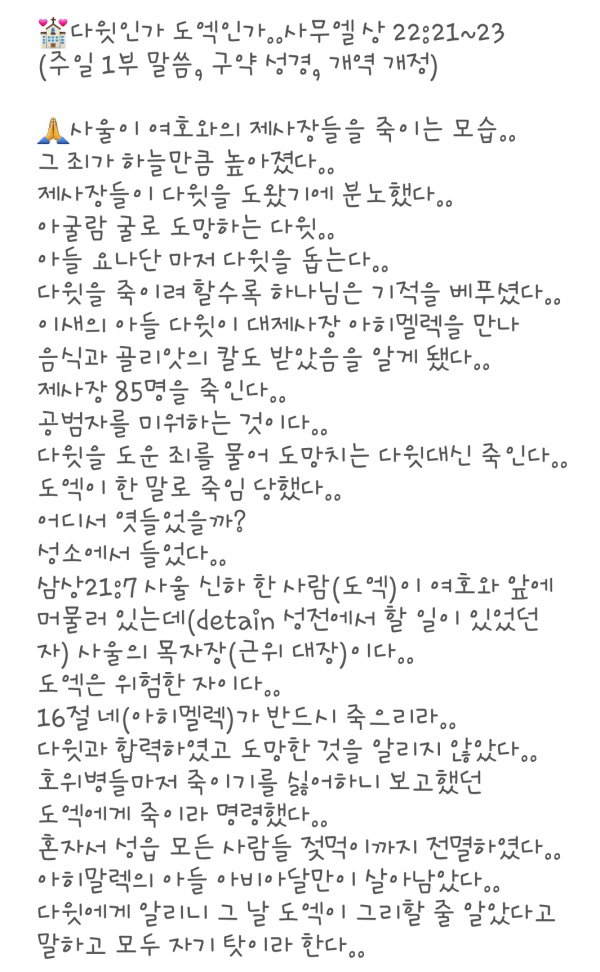 💒다윗인가 도엑인가..사무엘상 22:21~23
(주일 1부 말씀, 구약 성경, 개역 개정)
🙏사울이 여호와의 제사장들을 죽이는 모습..
그 죄가 하늘만큼 높아졌다..
제사장들이 다윗을 도왔기에 분노했다..
아굴람 굴로 도망하는 다윗..
아들 요나단 마저 다윗을 돕는다..
다윗을 죽이려 할수록 하나님은 기적을 베푸셨다..
이새의 아들 다윗이 대제사장 아히멜렉을 만나
음식과 골리앗의 칼도 받았음을 알게 됐다..
제사장 85명을 죽인다..
공범자를 미워하는 것이다..
다윗을 도운 죄를 물어 도망치는 다윗대신 죽인다..
도엑이 한 말로 죽임 당했다..
어디서 엿들었을까?
성소에서 들었다..
삼상21:7 사울 신하 한 사람(도엑)이 여호와 앞에
머물러 있는데(detain 성전에서 할 일이 있었던
자) 사울의 목자장(근위 대장)이다..
도엑은 위험한 자이다..
16절 네(아히멜렉)가 반드시 죽으리라..
다윗과 합력하였고 도망한 것을 알리지 않았다..
호위병들마저 죽이기를 싫어하니 보고했던
도엑에게 죽이라 명령했다..
혼자서 성읍 모든 사람들 젖먹이까지 전멸하였다..
아히말렉의 아들 아비아달만이 살아남았다..
다윗에게 알리니 그 날 도엑이 그리할 줄 알았다고
말하고 모두 자기 탓이라 한다..